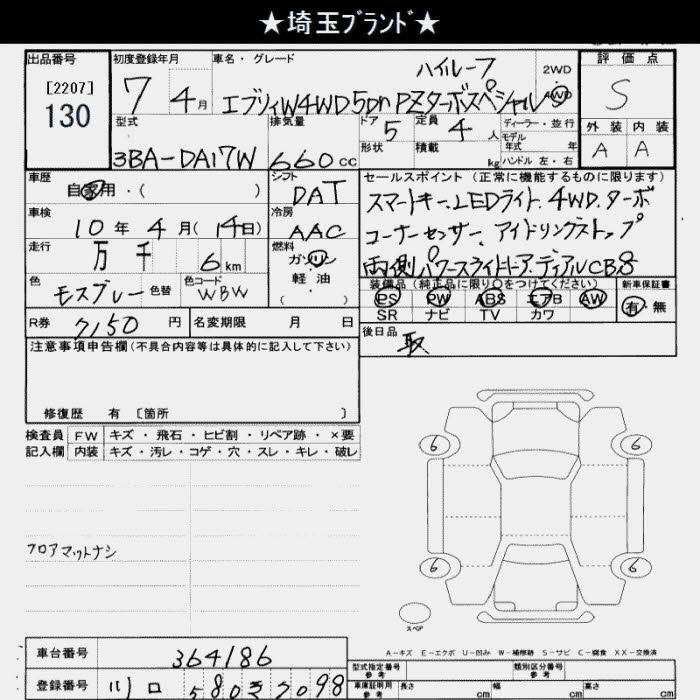 ★埼玉ブランド★
出品番号
[2207]
130
初度登録年月
7 4月
車名・グレード
ハイルーフ
エブリィW4WD5Dn PZターボスペシャル
2WD
4WD
評価点
S
外装 内装
A A
型式
3BA-DA17W
排気量
660cc
ドア 5
形状
定員 4人
積載 kg
ディーラー・並行
モデル
年式 年
ハンドル 左・右
車歴
自家用・( )
シフト
DAT
車検
10年 4月(14日)
冷房
AAC
走行
万 千 6km
燃料
ガソリン
・
軽油
( )
色
モスグレー 色替
色コード
WBW
R券 7150円
名変期限 月 日
セールスポイント(正常に機能するものに限ります)
スマートキー.LEDライト.4WD.ターボ
コーナーセンサー.アイドリングストップ
両側パワースライドドア.ディアルCB8
装備品(純正品に限り○をつけてください)
PS PW ABS エアB AW
SR ナビ TV カワ
新車保証書
有・無
後日品
取
注意事項申告欄(不具合内容等は具体的に記入して下さい)
修復歴 有 〔箇所 〕
検査員 FW キズ・飛石・ヒビ割・リペア跡・×要
記入欄 内装 キズ・汚レ・コゲ・穴・スレ・キレ・破レ
フロアマットナシ
6 6
6 6
スペア
A-キズ E-エクボ U-凹み W-補修跡 S-サビ C-腐食 XX-交換済
車台番号 364186
登録番号 川口 580 7098
型式指定番号
参考
類別区分番号
参考
車庫証明用
参考
長さ cm 幅 cm 高さ cm